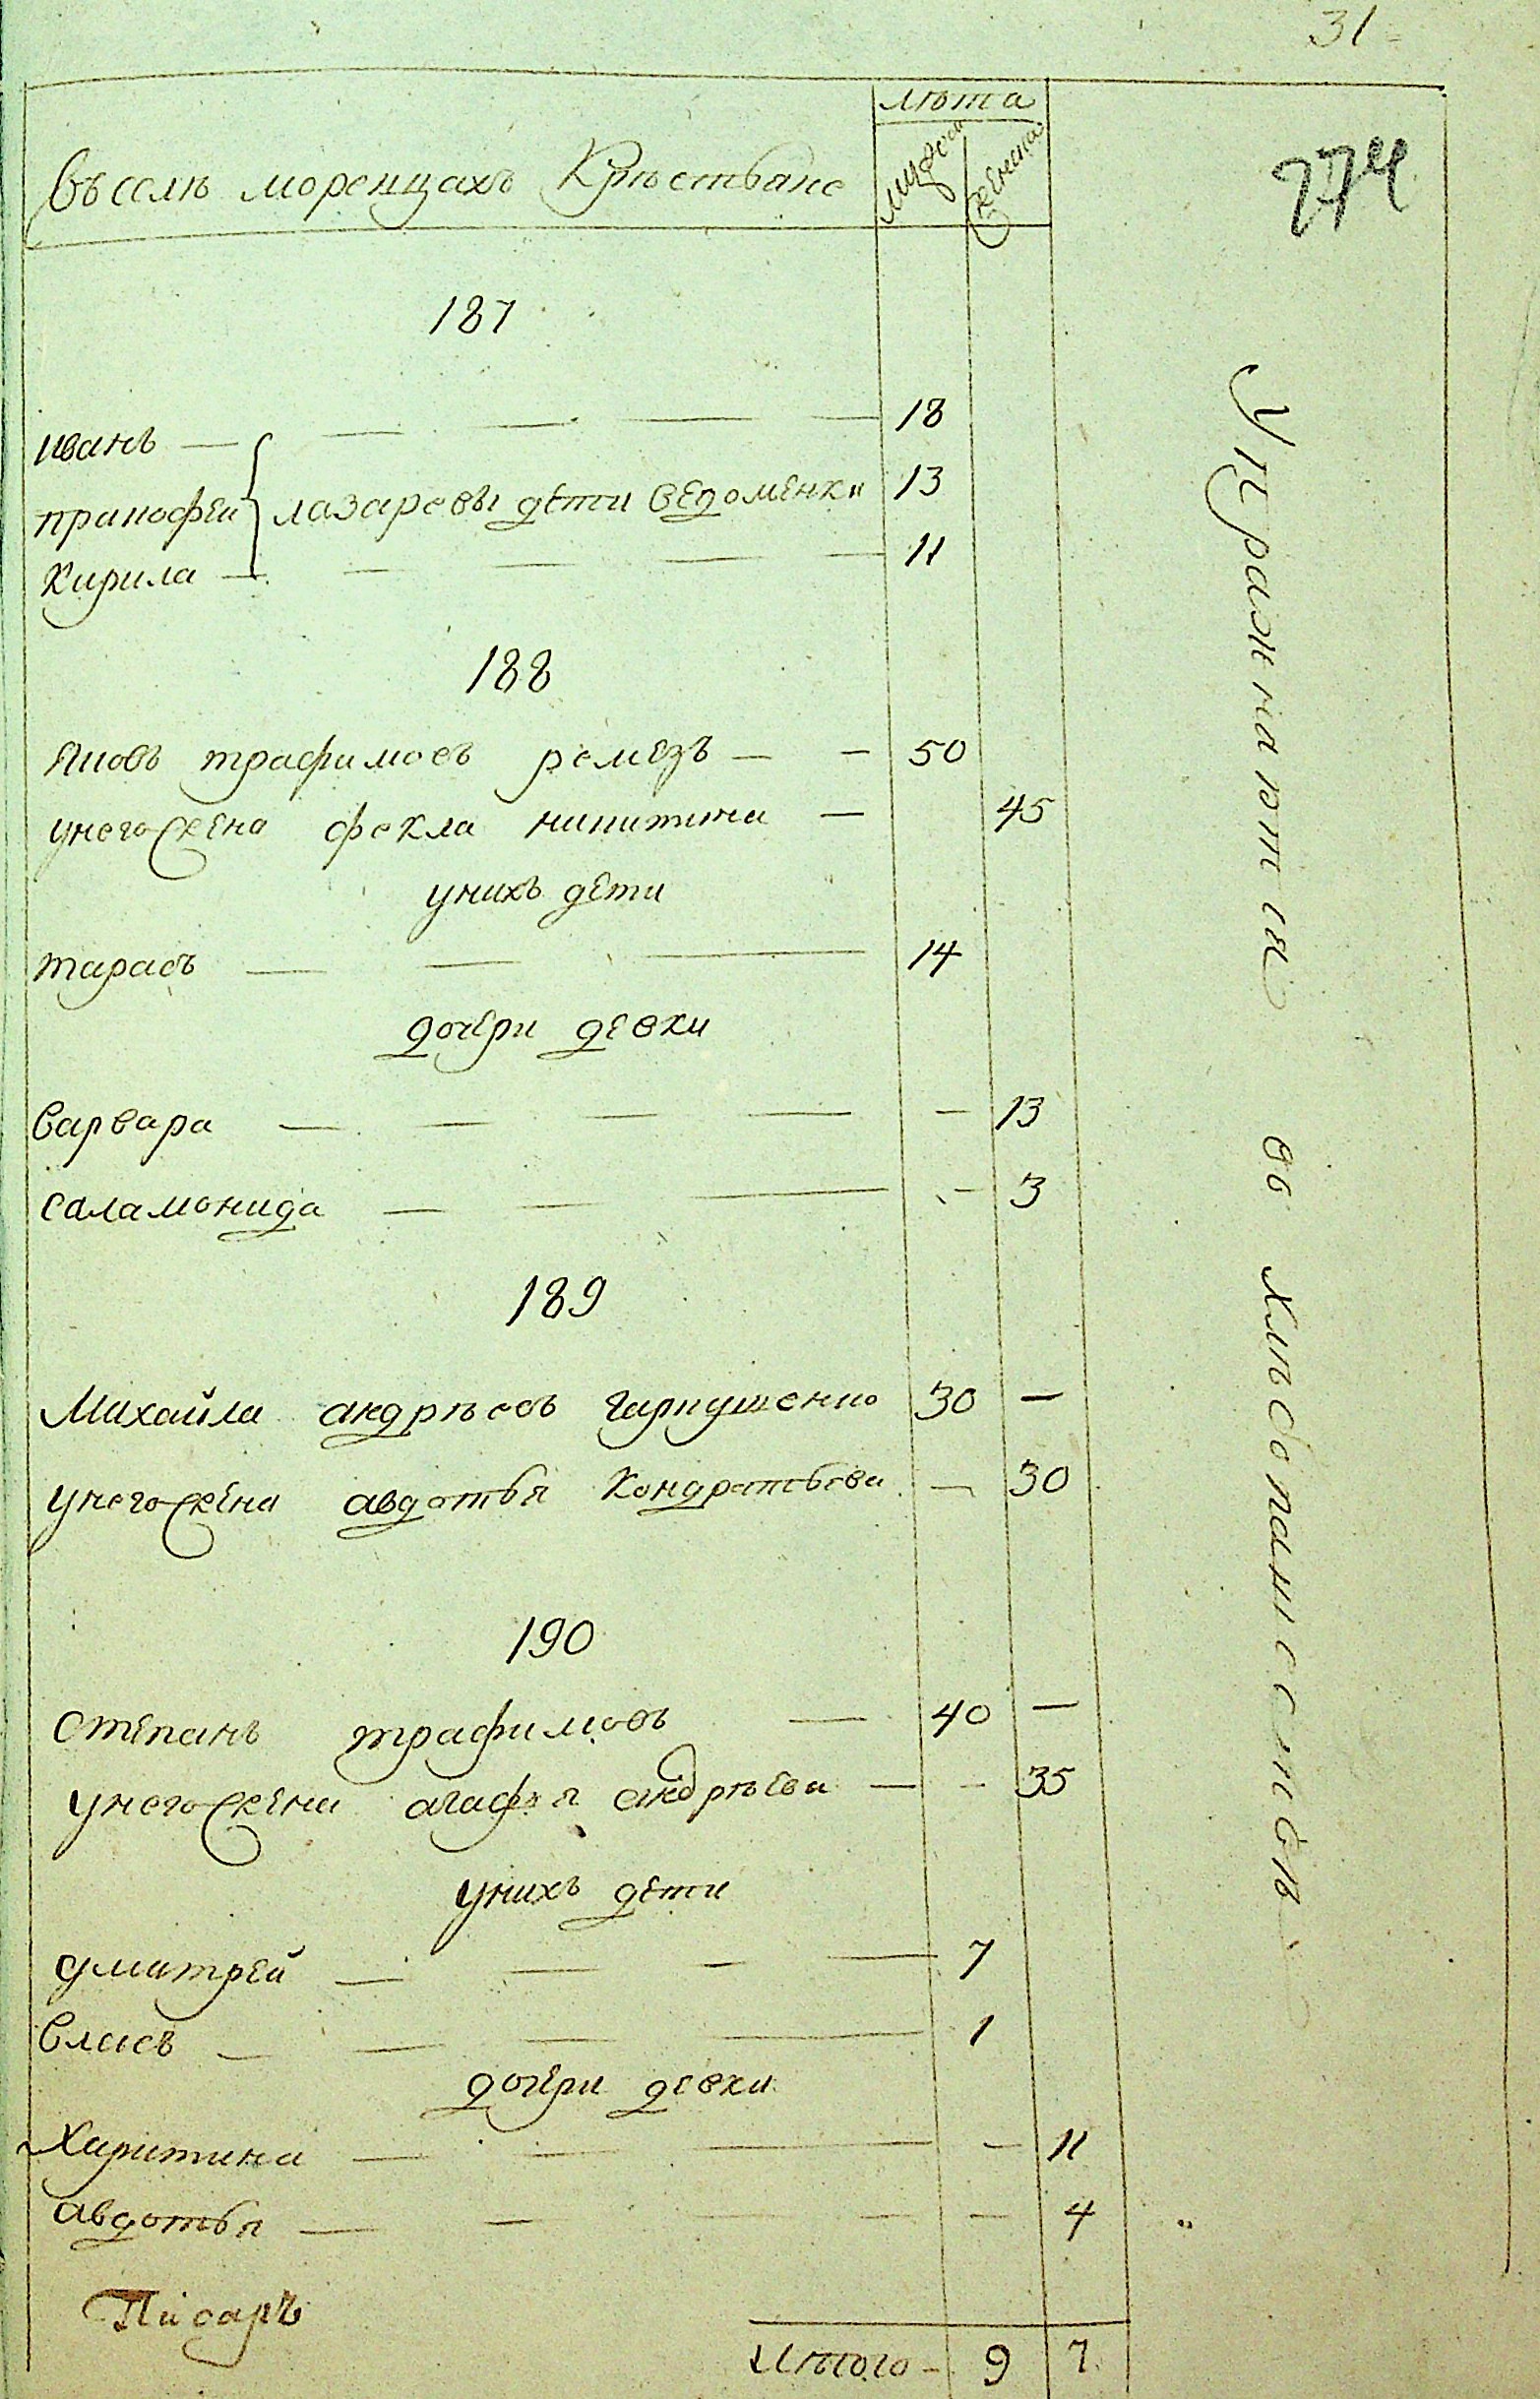 31
лѣта
Въ селѣ моренцахъ Крѣстьяне
мужеск
женска
274
187
иванъ — 18
пранофей лазаревы дети ведоменки 13
Кирила — 11
188
яковъ трафимовъ ремезъ — — 50
унего жена фекла никитина — 45
унихъ дети
тарасъ — 14
дочери девки
варвара — 13
саламонида — 3
189
Михайла андрѣевъ гаркушенко 30 —
унего жена авдотья Кондратьева — 30
190
степанъ трафимовъ — 40 —
унего жена агафя андрѣева — — 35
унихъ дети
дмитрей — 7
власъ — 1
дочери девки
Харитина — 11
авдотья — 4
Писаръ
Итого — 9 7
Упражнаются во хлѣбопашествѣ